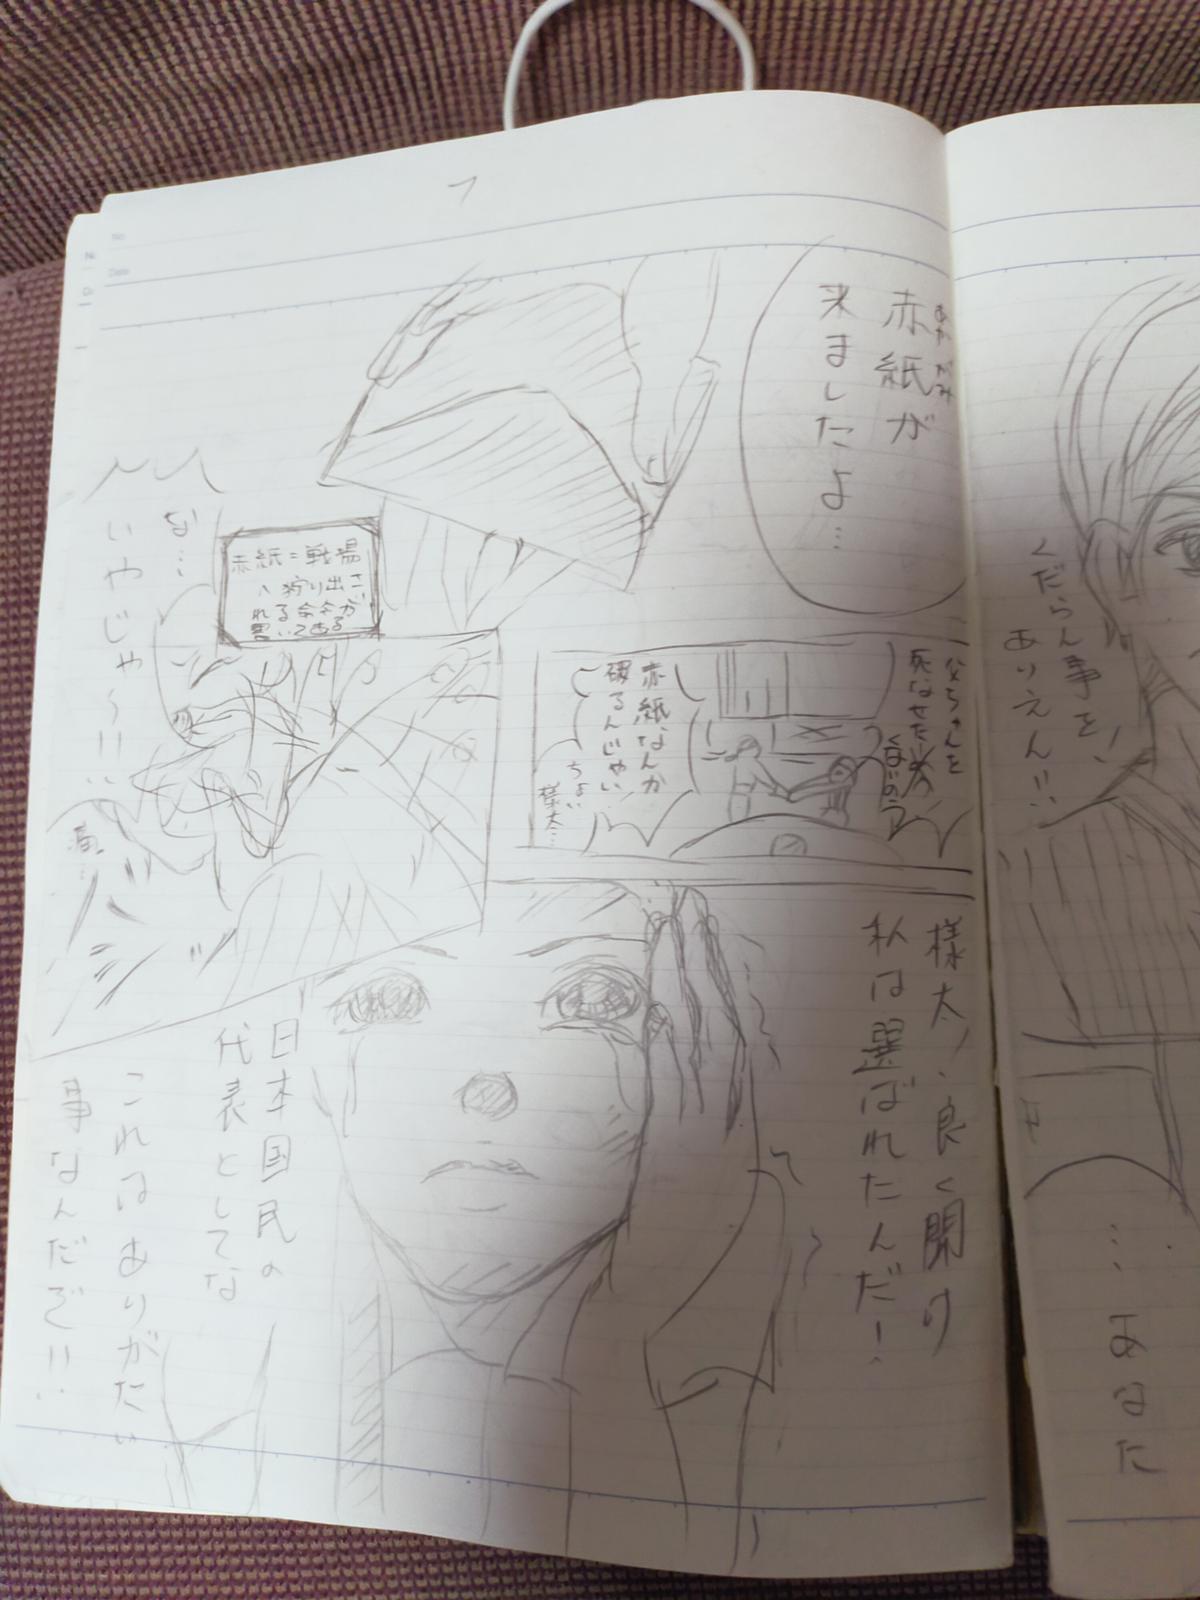 くだらん事を
ありえん!!
…あなた
7
No.
Date
赤紙が
あかがみ
来ましたよ…
赤紙=戦場
へ狩り出さ
れる命令が
書いてある
な…
いやじゃ〜!!
父ちゃんを
死なせた
くないのう
赤紙なんか
破るんじゃい
ちょい
様太…
様太!良く聞け
私は選ばれたんだ!
日本国民の
代表としてな
これはありがたい
事なんだぞ!!